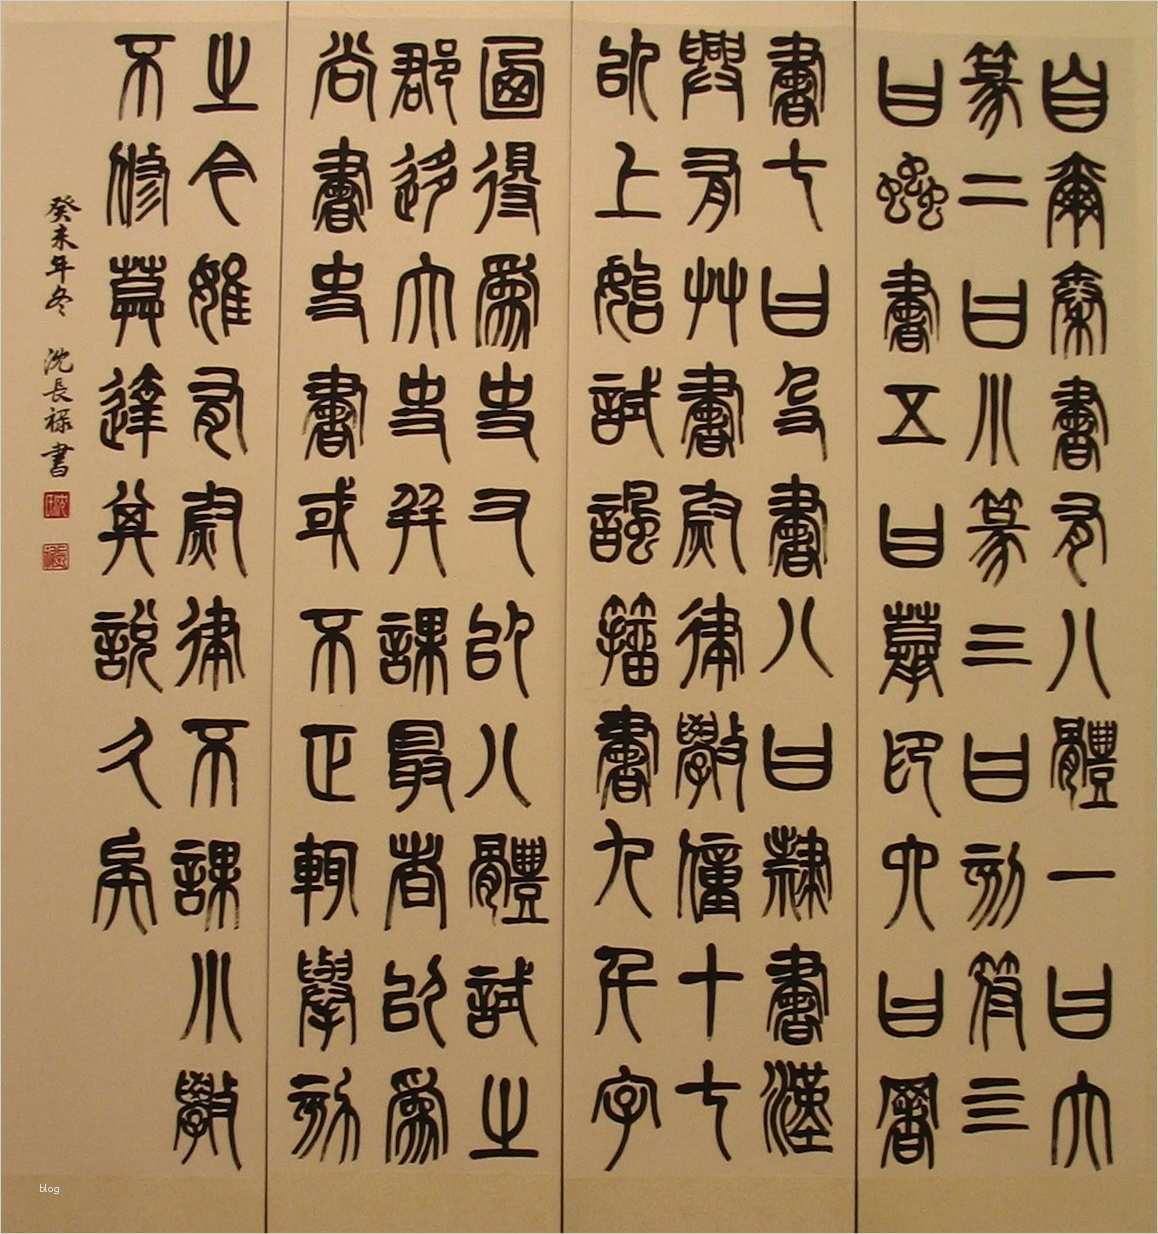 自爾秦書有八體一曰大
篆二曰小篆三曰刻符四
曰蟲書五曰摹印六曰署
書七曰殳書八曰隸書漢
興有艸書尉律學僮十七
以上始試諷籀書九千字
乃得為吏又以八體試之
郡移大史并課最者以為
尚書史書或不正輒舉劾
之今雖有尉律不課小學
不修莫達其說久矣
癸未年冬 沈長祿書
blog